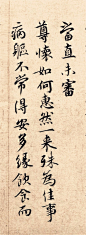 當直未審
尊懷如何忽然一來殊為佳事
病軀不常得安多緣飲食而